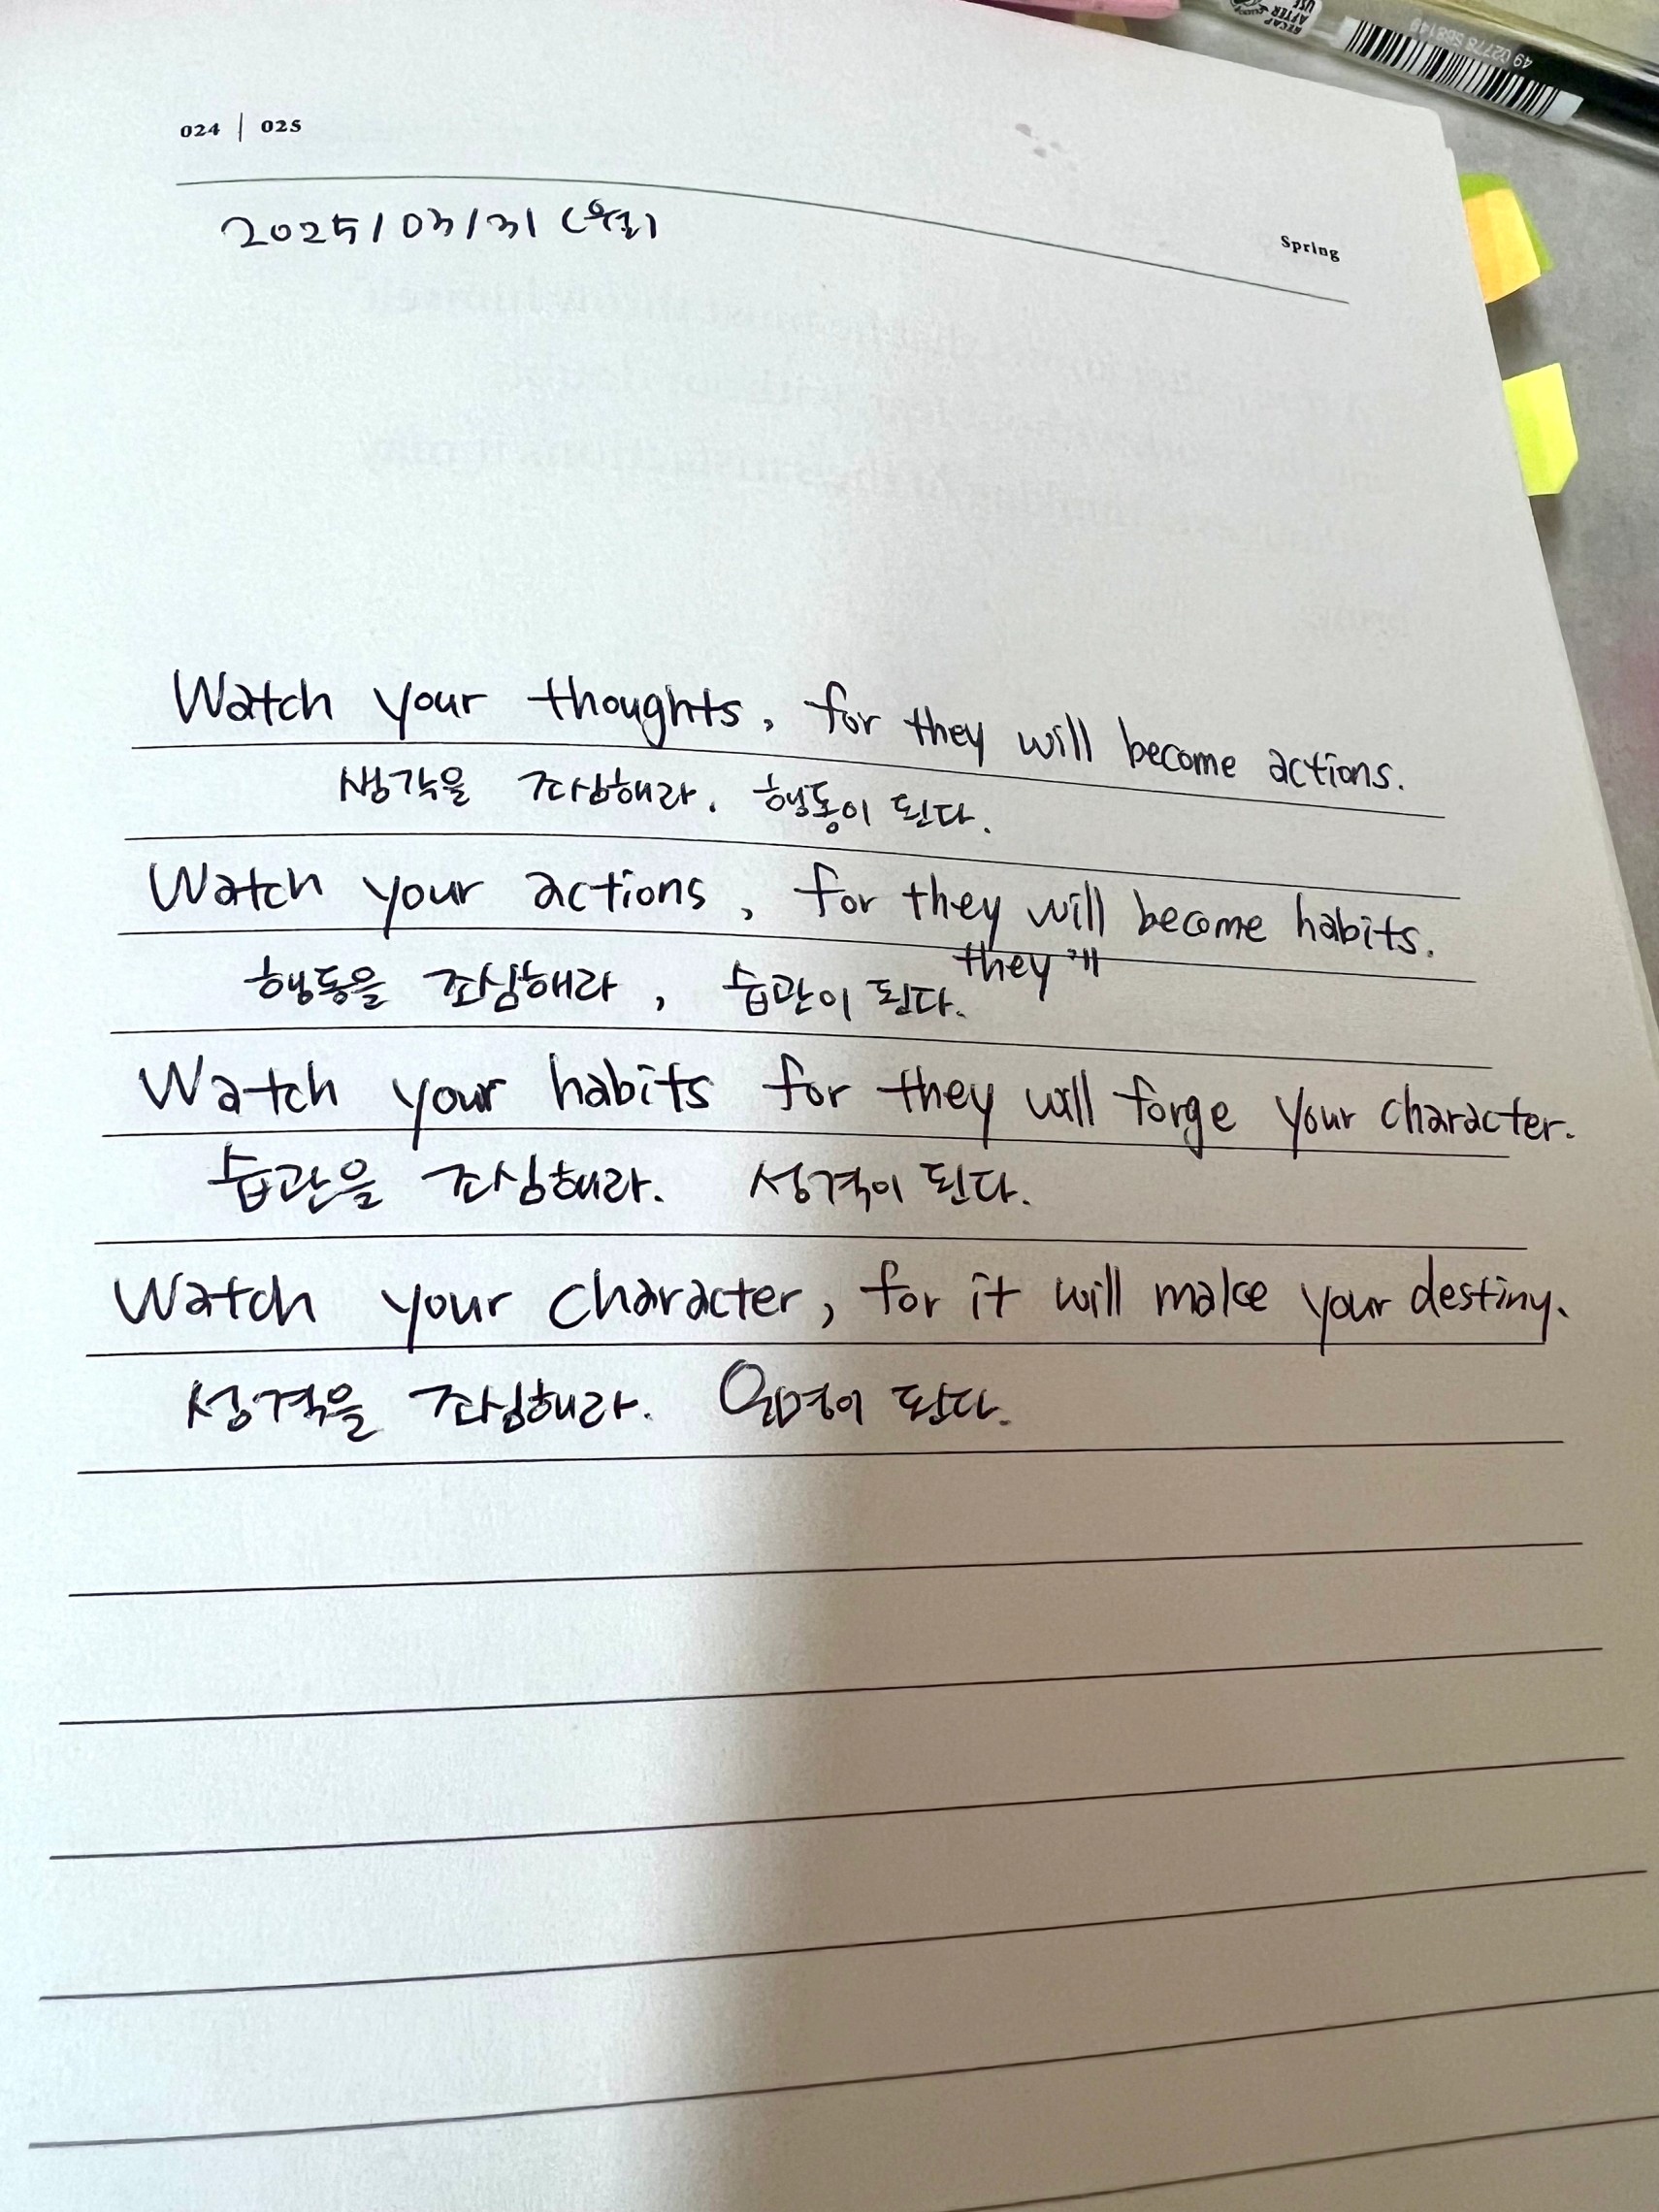 RECAP
AFTER
USE
49 02778
024 | 025
2025/03/31 (월)
Spring
Watch your thoughts, for they will become actions.
생각을 조심해라. 행동이 된다.
Watch your actions, for they will become habits.
행동을 조심해라, 습관이 된다. they
Watch your habits for they will forge your character.
습관을 조심해라. 성격이 된다.
Watch your character, for it will make your destiny.
성격을 조심해라. 운명이 된다.